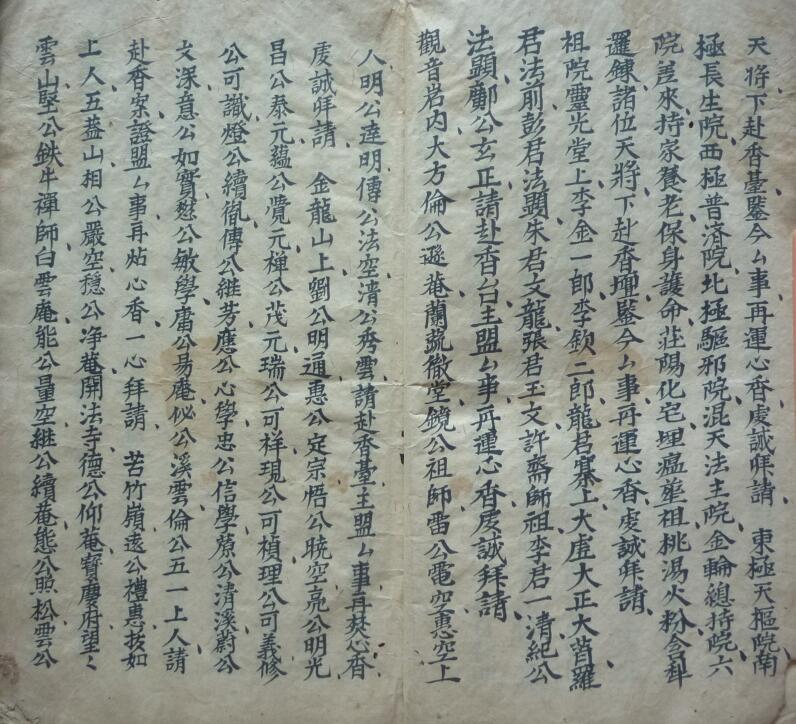 天将下赴香臺鑒今厶事再運心香虔誠拜請　東極天樞院南
極長生院西極普済院北極驅邪院混天法主院金輪總持院六
院差來持家養老保身護命荘陽化宅埋瘟華祖桃湯火粉含
羅錬諸位天将下赴香壇鑒今厶事再運心香虔誠拜請
祖院靈光堂上李金一郎李欽二郎龍君寨上大虚大正大首羅
君法前彭君法顕朱君文龍張君玉文許齋師祖李君一清紀公
法顕鄺公玄正請赴香台主盟厶事再運心香虔誠拜請
觀音岩内大方倫公遜菴蘭藂徹堂鏡公祖師雷公電空惠空上
人明公達明傳公法空清公秀雲請赴香臺主盟厶事再焚心香
虔誠拜請　金龍山上劉公明通惠公定宗悟公暁空亮公明光
昌公泰元蘊公覺元禅公茂元瑞公可祥現公可楨理公可義修
公可識燈公續傳公継芳應公心學忠公信學原公清溪蔚公
文深意公如實公敏學庸公易庵似公溪雲倫公五一上人請
赴香案證盟厶事再炷心香一心拜請　苦竹嶺遠公禮惠抜如
上人五盖山相公嚴空穏公净菴開法寺德公仰菴寳慶府望々
雲山堅公鉄牛禅師白雲庵能公量空継公續菴態公照松雲公